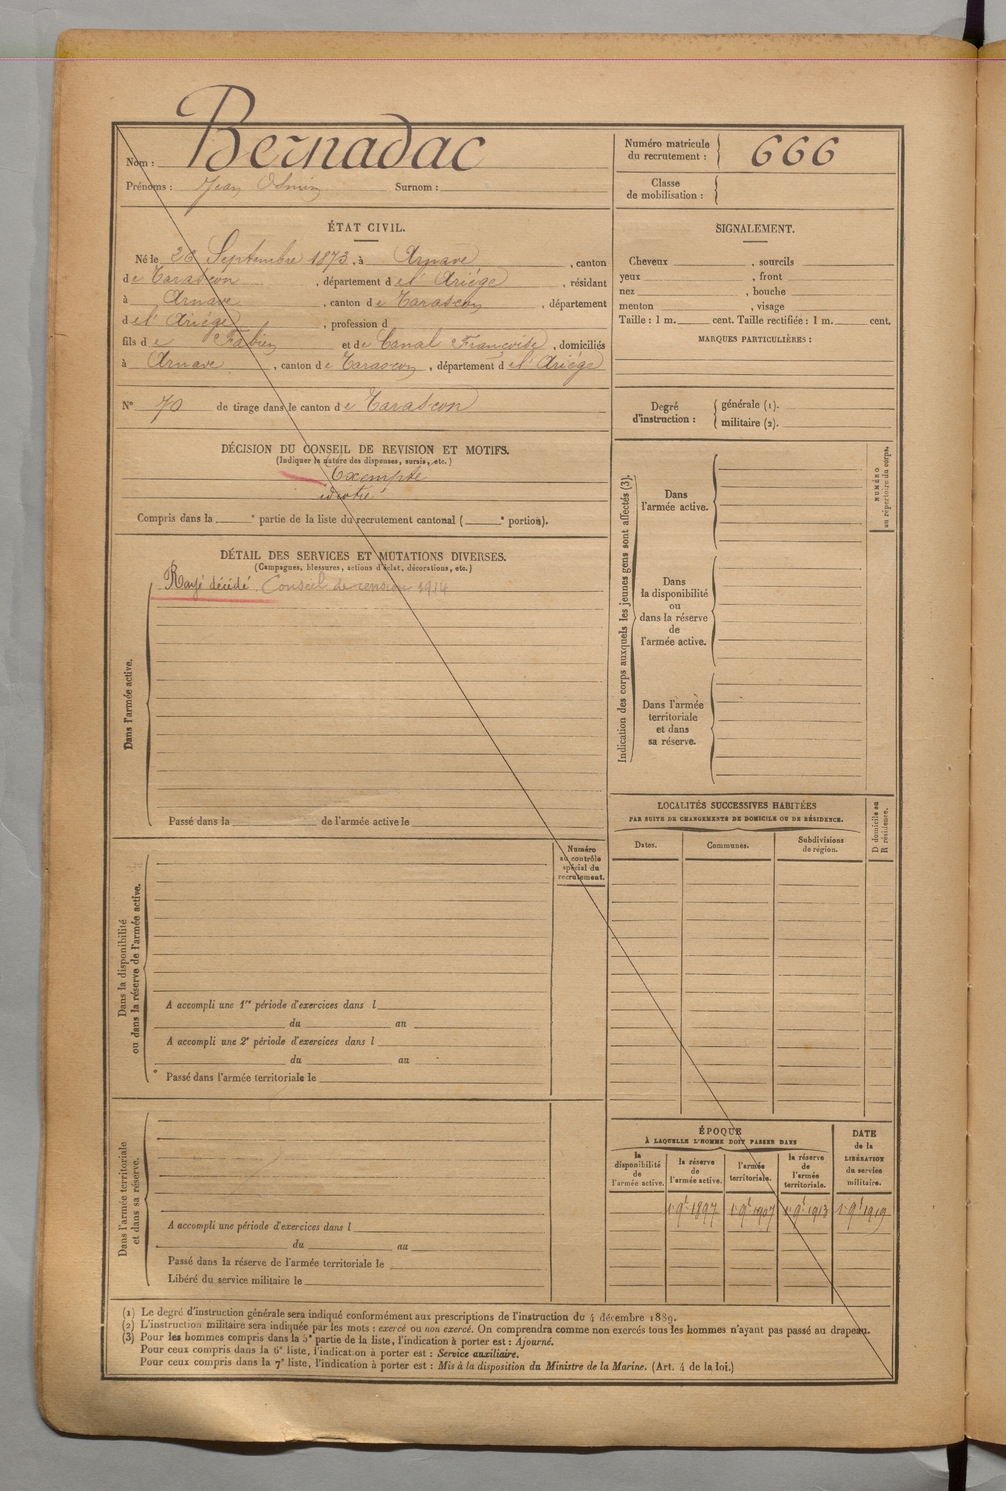 Nom : Bernadac
Prénoms : Jean Osmin Surnom :
Numéro matricule du recrutement : 666
Classe de mobilisation :
ÉTAT CIVIL.
Né le 26 Septembre 1873, à Arnave, canton
de Tarascon, département de l'Ariége, résidant
à Arnave, canton de Tarascon, département
de l'Ariége, profession d
fils de Fabien et de Canal Françoise, domiciliés
à Arnave, canton de Tarascon, département de l'Ariége
N° 70 de tirage dans le canton de Tarascon
SIGNALEMENT.
Cheveux , sourcils
yeux , front
nez , bouche
menton , visage
Taille : 1 m. cent. Taille rectifiée : 1 m. cent.
MARQUES PARTICULIÈRES :
Degré d'instruction : générale (1).
militaire (2).
DÉCISION DU CONSEIL DE REVISION ET MOTIFS.
(Indiquer la nature des dispenses, sursis, etc.)
Exempté
idiotie
Compris dans la e partie de la liste du recrutement cantonal ( e portion).
DÉTAIL DES SERVICES ET MUTATIONS DIVERSES.
(Campagnes, blessures, actions d'éclat, décorations, etc.)
Rayé décédé. Conseil de revision 1914
Dans l'armée active.
Passé dans la de l'armée active le
Indication des corps auxquels les jeunes gens sont affectés (3).
NUMÉRO au répertoire du corps.
Dans
l'armée active.
Dans
la disponibilité
ou
dans la réserve
de
l'armée active.
Dans l'armée
territoriale
et dans
sa réserve.
LOCALITÉS SUCCESSIVES HABITÉES
PAR SUITE DE CHANGEMENTS DE DOMICILE OU DE RÉSIDENCE.
Dates. Communes. Subdivisions de région.
D domicile ou R résidence.
Numéro
au contrôle
spécial du
recrutement.
Dans la disponibilité
ou dans la réserve de l'armée active.
A accompli une 1re période d'exercices dans l
du au
A accompli une 2e période d'exercices dans l
du au
Passé dans l'armée territoriale le
Dans l'armée territoriale
et dans sa réserve.
A accompli une période d'exercices dans l
du au
Passé dans la réserve de l'armée territoriale le
Libéré du service militaire le
ÉPOQUE
À LAQUELLE L'HOMME DOIT PASSER DANS
la disponibilité de l'armée active.
la réserve de l'armée active.
l'armée territoriale.
la réserve de l'armée territoriale.
DATE de la LIBÉRATION du service militaire.
1er 9bre 1897 1er 9bre 1907 1er 9bre 1913 1er 9bre 1919
(1) Le degré d'instruction générale sera indiqué conformément aux prescriptions de l'instruction du 4 décembre 1889.
(2) L'instruction militaire sera indiquée par les mots : exercé ou non exercé. On comprendra comme non exercés tous les hommes n'ayant pas passé au drapeau.
(3) Pour les hommes compris dans la 5e partie de la liste, l'indication à porter est : Ajourné.
Pour ceux compris dans la 6e liste, l'indication à porter est : Service auxiliaire.
Pour ceux compris dans la 7e liste, l'indication à porter est : Mis à la disposition du Ministre de la Marine. (Art. 4 de la loi.)